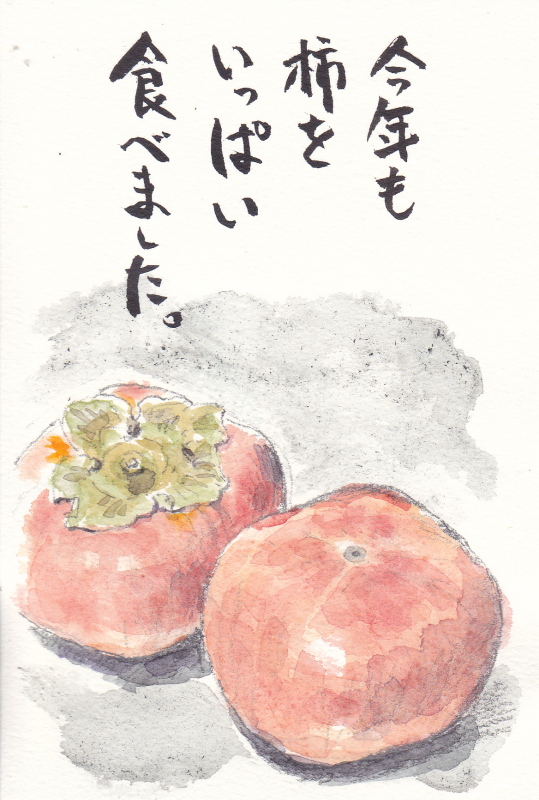 今年も
柿を
いっぱい
食べました。